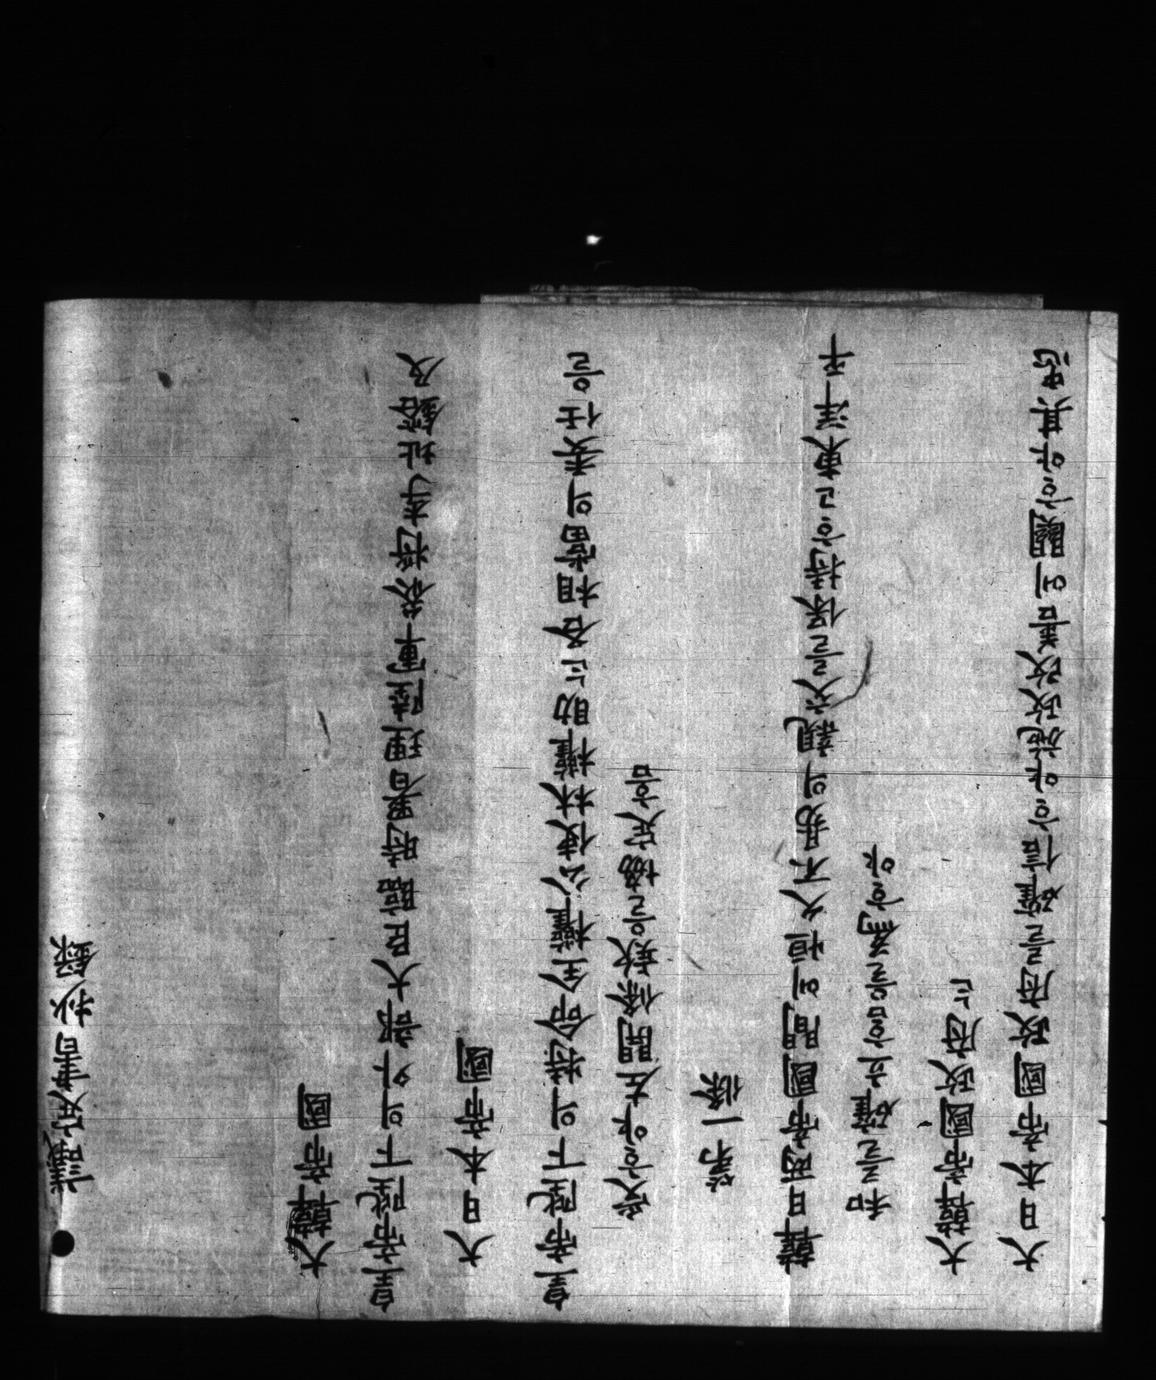 議定書抄錄
大韓帝國
皇帝陛下의外部大臣臨時署理陸軍參將李址鎔及
大日本帝國
皇帝陛下의特命全權公使林權助는各相當의委任을
受ᄒᆞ야左開條款을協定홈
第一條
韓日兩帝國間에恒久不易의親交를保持ᄒᆞ고東洋平
和를確立홈을爲ᄒᆞ야
大韓帝國政府는
大日本帝國政府를確信ᄒᆞ야施政改善에關ᄒᆞ야其忠